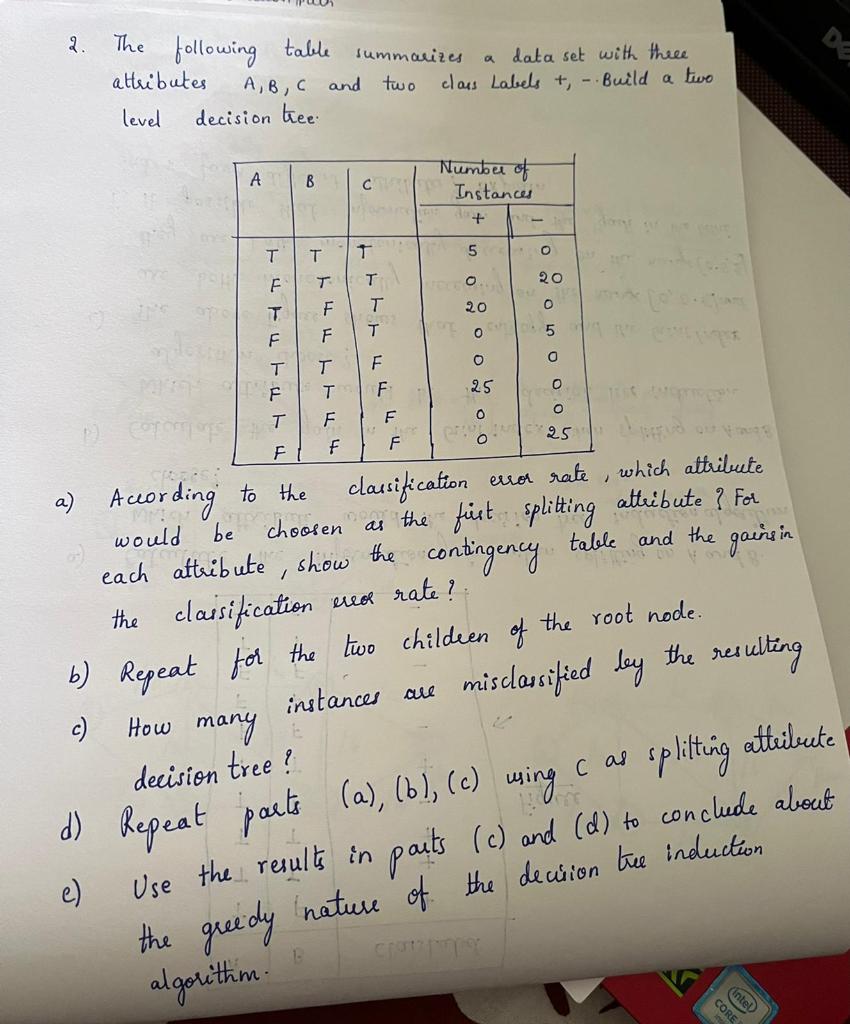 2. The following table summarizes a data set with three
attributes A, B, C and two class Labels +, -. Build a two
level decision tree.
A B C Number of
Instances
+ -
T T T 5 0
F T T 0 20
T F T 20 0
F F T 0 5
T T F 0 0
F T F 25 0
T F F 0 0
F F F 0 25
a) According to the classification error rate, which attribute
would be choosen as the first splitting attribute? For
each attribute, show the contingency table and the gains in
the classification error rate?
b) Repeat for the two children of the root node.
c) How many instances are misclassified by the resulting
decision tree?
d) Repeat parts (a), (b), (c) using C as splitting attribute
e) Use the results in parts (c) and (d) to conclude about
the greedy nature of the decision tree induction
algorithm.
intel
CORE